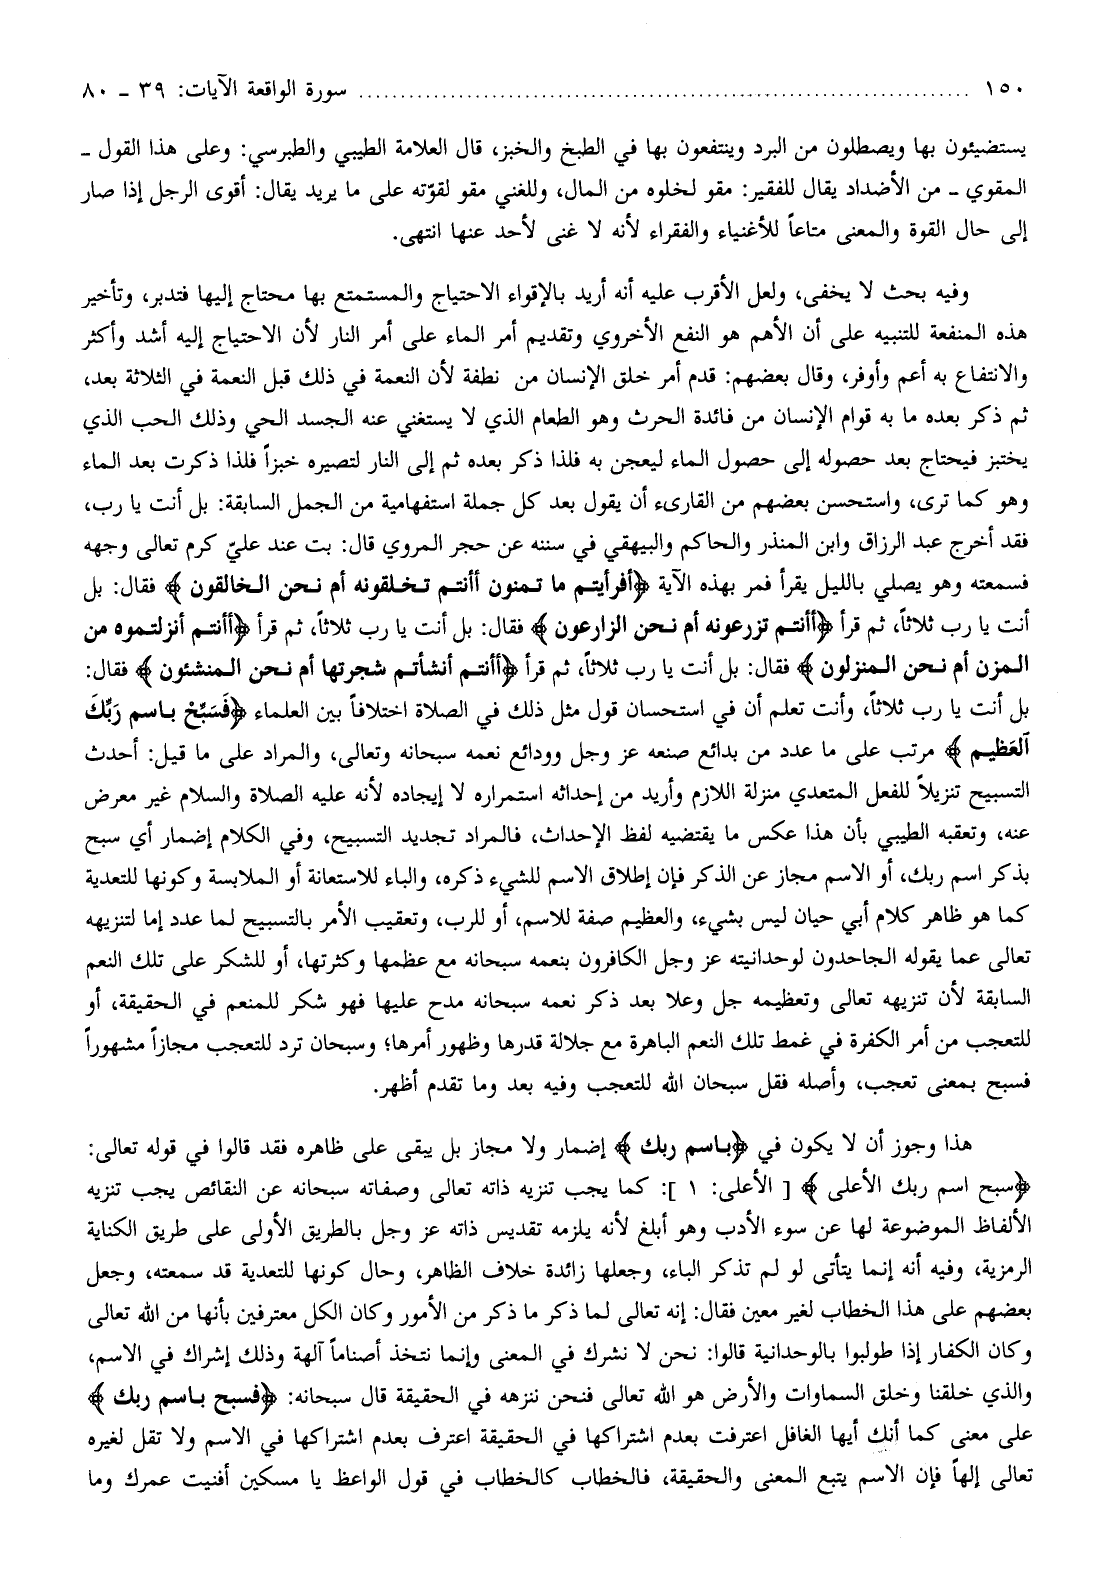 ١٥٠ ........................................................................ سورة الواقعة الآيات: ٣٩ ـ ٨٠
يستضيئون بها ويصطلون من البرد وينتفعون بها في الطبخ والخبز، قال العلامة الطيبي والطبرسي: وعلى هذا القول ـ
المقوي ـ من الأضداد يقال للفقير: مقو لخلوه من المال، وللغني مقو لقوّته على ما يريد يقال: أقوى الرجل إذا صار
إلى حال القوة والمعنى متاعاً للأغنياء والفقراء لأنه لا غنى لأحد عنها انتهى.
وفيه بحث لا يخفى، ولعل الأقرب عليه أنه أريد بالإقواء الاحتياج والمستمتع بها محتاج إليها فتدبر، وتأخير
هذه المنفعة للتنبيه على أن الأهم هو النفع الأخروي وتقديم أمر الماء على أمر النار لأن الاحتياج إليه أشد وأكثر
والانتفاع به أعم وأوفر، وقال بعضهم: قدم أمر خلق الإنسان من نطفة لأن النعمة في ذلك قبل النعمة في الثلاثة بعد،
ثم ذكر بعده ما به قوام الإنسان من فائدة الحرث وهو الطعام الذي لا يستغني عنه الجسد الحي وذلك الحب الذي
يختبز فيحتاج بعد حصوله إلى حصول الماء ليعجن به فلذا ذكر بعده ثم إلى النار لتصيره خبزاً فلذا ذكرت بعد الماء
وهو كما ترى، واستحسن بعضهم من القارىء أن يقول بعد كل جملة استفهامية من الجمل السابقة: بل أنت يا رب،
فقد أخرج عبد الرزاق وابن المنذر والحاكم والبيهقي في سننه عن حجر المروي قال: بت عند عليّ كرم تعالى وجهه
فسمعته وهو يصلي بالليل يقرأ فمر بهذه الآية ﴿أفرأيتم ما تمنون أأنتم تخلقونه أم نحن الخالقون﴾ فقال: بل
أنت يا رب ثلاثاً، ثم قرأ ﴿أأنتم تزرعونه أم نحن الزارعون﴾ فقال: بل أنت يا رب ثلاثاً، ثم قرأ ﴿أأنتم أنزلتموه من
المزن أم نحن المنزلون﴾ فقال: بل أنت يا رب ثلاثاً، ثم قرأ ﴿أأنتم أنشأتم شجرتها أم نحن المنشئون﴾ فقال:
بل أنت يا رب ثلاثاً، وأنت تعلم أن في استحسان قول مثل ذلك في الصلاة اختلافاً بين العلماء ﴿فَسَبِّحْ باسم رَبِّكَ
ٱلعَظيم﴾ مرتب على ما عدد من بدائع صنعه عز وجل وودائع نعمه سبحانه وتعالى، والمراد على ما قيل: أحدث
التسبيح تنزيلاً للفعل المتعدي منزلة اللازم وأريد من إحداثه استمراره لا إيجاده لأنه عليه الصلاة والسلام غير معرض
عنه، وتعقبه الطيبي بأن هذا عكس ما يقتضيه لفظ الإحداث، فالمراد تجديد التسبيح، وفي الكلام إضمار أي سبح
بذكر اسم ربك، أو الاسم مجاز عن الذكر فإن إطلاق الاسم للشيء ذكره، والباء للاستعانة أو الملابسة وكونها للتعدية
كما هو ظاهر كلام أبي حيان ليس بشيء، والعظيم صفة للاسم، أو للرب، وتعقيب الأمر بالتسبيح لما عدد إما لتنزيهه
تعالى عما يقوله الجاحدون لوحدانيته عز وجل الكافرون بنعمه سبحانه مع عظمها وكثرتها، أو للشكر على تلك النعم
السابقة لأن تنزيهه تعالى وتعظيمه جل وعلا بعد ذكر نعمه سبحانه مدح عليها فهو شكر للمنعم في الحقيقة، أو
للتعجب من أمر الكفرة في غمط تلك النعم الباهرة مع جلالة قدرها وظهور أمرها؛ وسبحان ترد للتعجب مجازاً مشهوراً
فسبح بمعنى تعجب، وأصله فقل سبحان الله للتعجب وفيه بعد وما تقدم أظهر.
هذا وجوز أن لا يكون في ﴿باسم ربك﴾ إضمار ولا مجاز بل يبقى على ظاهره فقد قالوا في قوله تعالى:
﴿سبح اسم ربك الأعلى﴾ [ الأعلى: ١ ]: كما يجب تنزيه ذاته تعالى وصفاته سبحانه عن النقائص يجب تنزيه
الألفاظ الموضوعة لها عن سوء الأدب وهو أبلغ لأنه يلزمه تقديس ذاته عز وجل بالطريق الأولى على طريق الكناية
الرمزية، وفيه أنه إنما يتأتى لو لم تذكر الباء، وجعلها زائدة خلاف الظاهر، وحال كونها للتعدية قد سمعته، وجعل
بعضهم على هذا الخطاب لغير معين فقال: إنه تعالى لما ذكر ما ذكر من الأمور وكان الكل معترفين بأنها من الله تعالى
وكان الكفار إذا طولبوا بالوحدانية قالوا: نحن لا نشرك في المعنى وإنما نتخذ أصناماً آلهة وذلك إشراك في الاسم،
والذي خلقنا وخلق السماوات والأرض هو الله تعالى فنحن ننزهه في الحقيقة قال سبحانه: ﴿فسبح باسم ربك﴾
على معنى كما أنك أيها الغافل اعترفت بعدم اشتراكها في الحقيقة اعترف بعدم اشتراكها في الاسم ولا تقل لغيره
تعالى إلهاً فإن الاسم يتبع المعنى والحقيقة، فالخطاب كالخطاب في قول الواعظ يا مسكين أفنيت عمرك وما